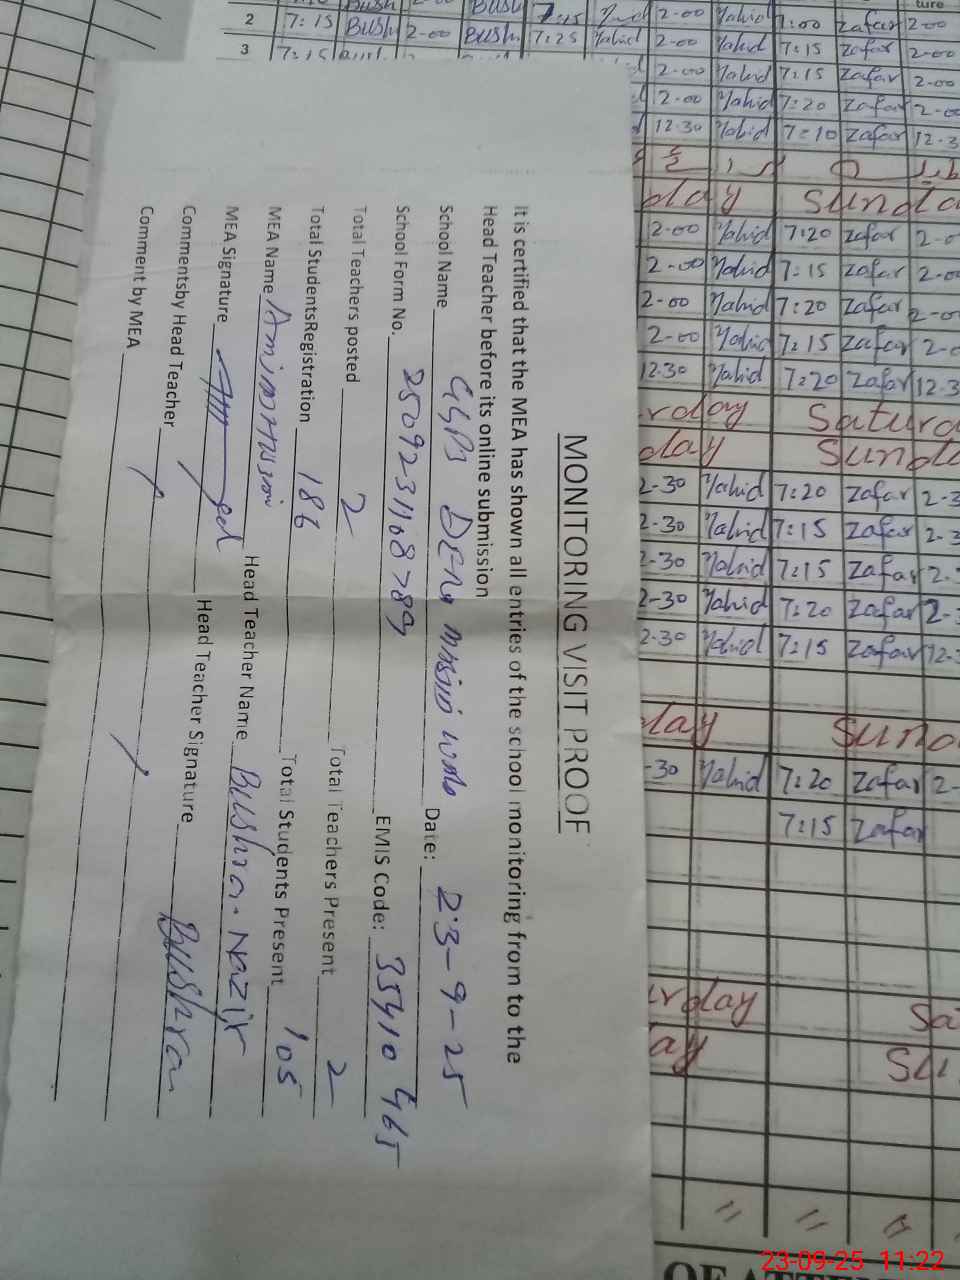 MONITORING VISIT PROOF
It is certified that the MEA has shown all entries of the school monitoring from to the
Head Teacher before its online submission
School Name GGPS Date: 23-9-25
School Form No. 2509231108789 EMIS Code: 35410465
Total Teachers posted 2 Total Teachers Present 2
Total StudentsRegistration 186 Total Students Present 105
MEA Name Head Teacher Name Bushra. Nazir
MEA Signature Head Teacher Signature Bushra
Commentsby Head Teacher
Comment by MEA
2 7:15 Bush 2-00 Bush 7:25 Zahid 2-00 Zahid 7:15 Zafar 2-00
3 7:15
2-00 Zahid 7:15 Zafar 2-00
2-00 Zahid 7:20 Zafar 2-00
12.30 Zahid 7:10 Zafar 12.3
day Sunda
2-00 Zahid 7:20 Zafar 2-0
2-00 Zahid 7:15 Zafar 2-0
2-00 Zahid 7:20 Zafar 2-0
2-00 Zahid 7:15 Zafar 2-0
12.30 Zahid 7:20 Zafar 12.3
rday Saturd
day Sunda
2-30 Zahid 7:20 Zafar 2-3
2-30 Zahid 7:15 Zafar 2-3
2-30 Zahid 7:15 Zafar 2-
2-30 Zahid 7:20 Zafar 2-3
2-30 Zahid 7:15 Zafar 12-3
day Sund
-30 Zahid 7:20 Zafar 2-
7:15 Zafar
urday Sa
ay Su
23-09-25 11:22